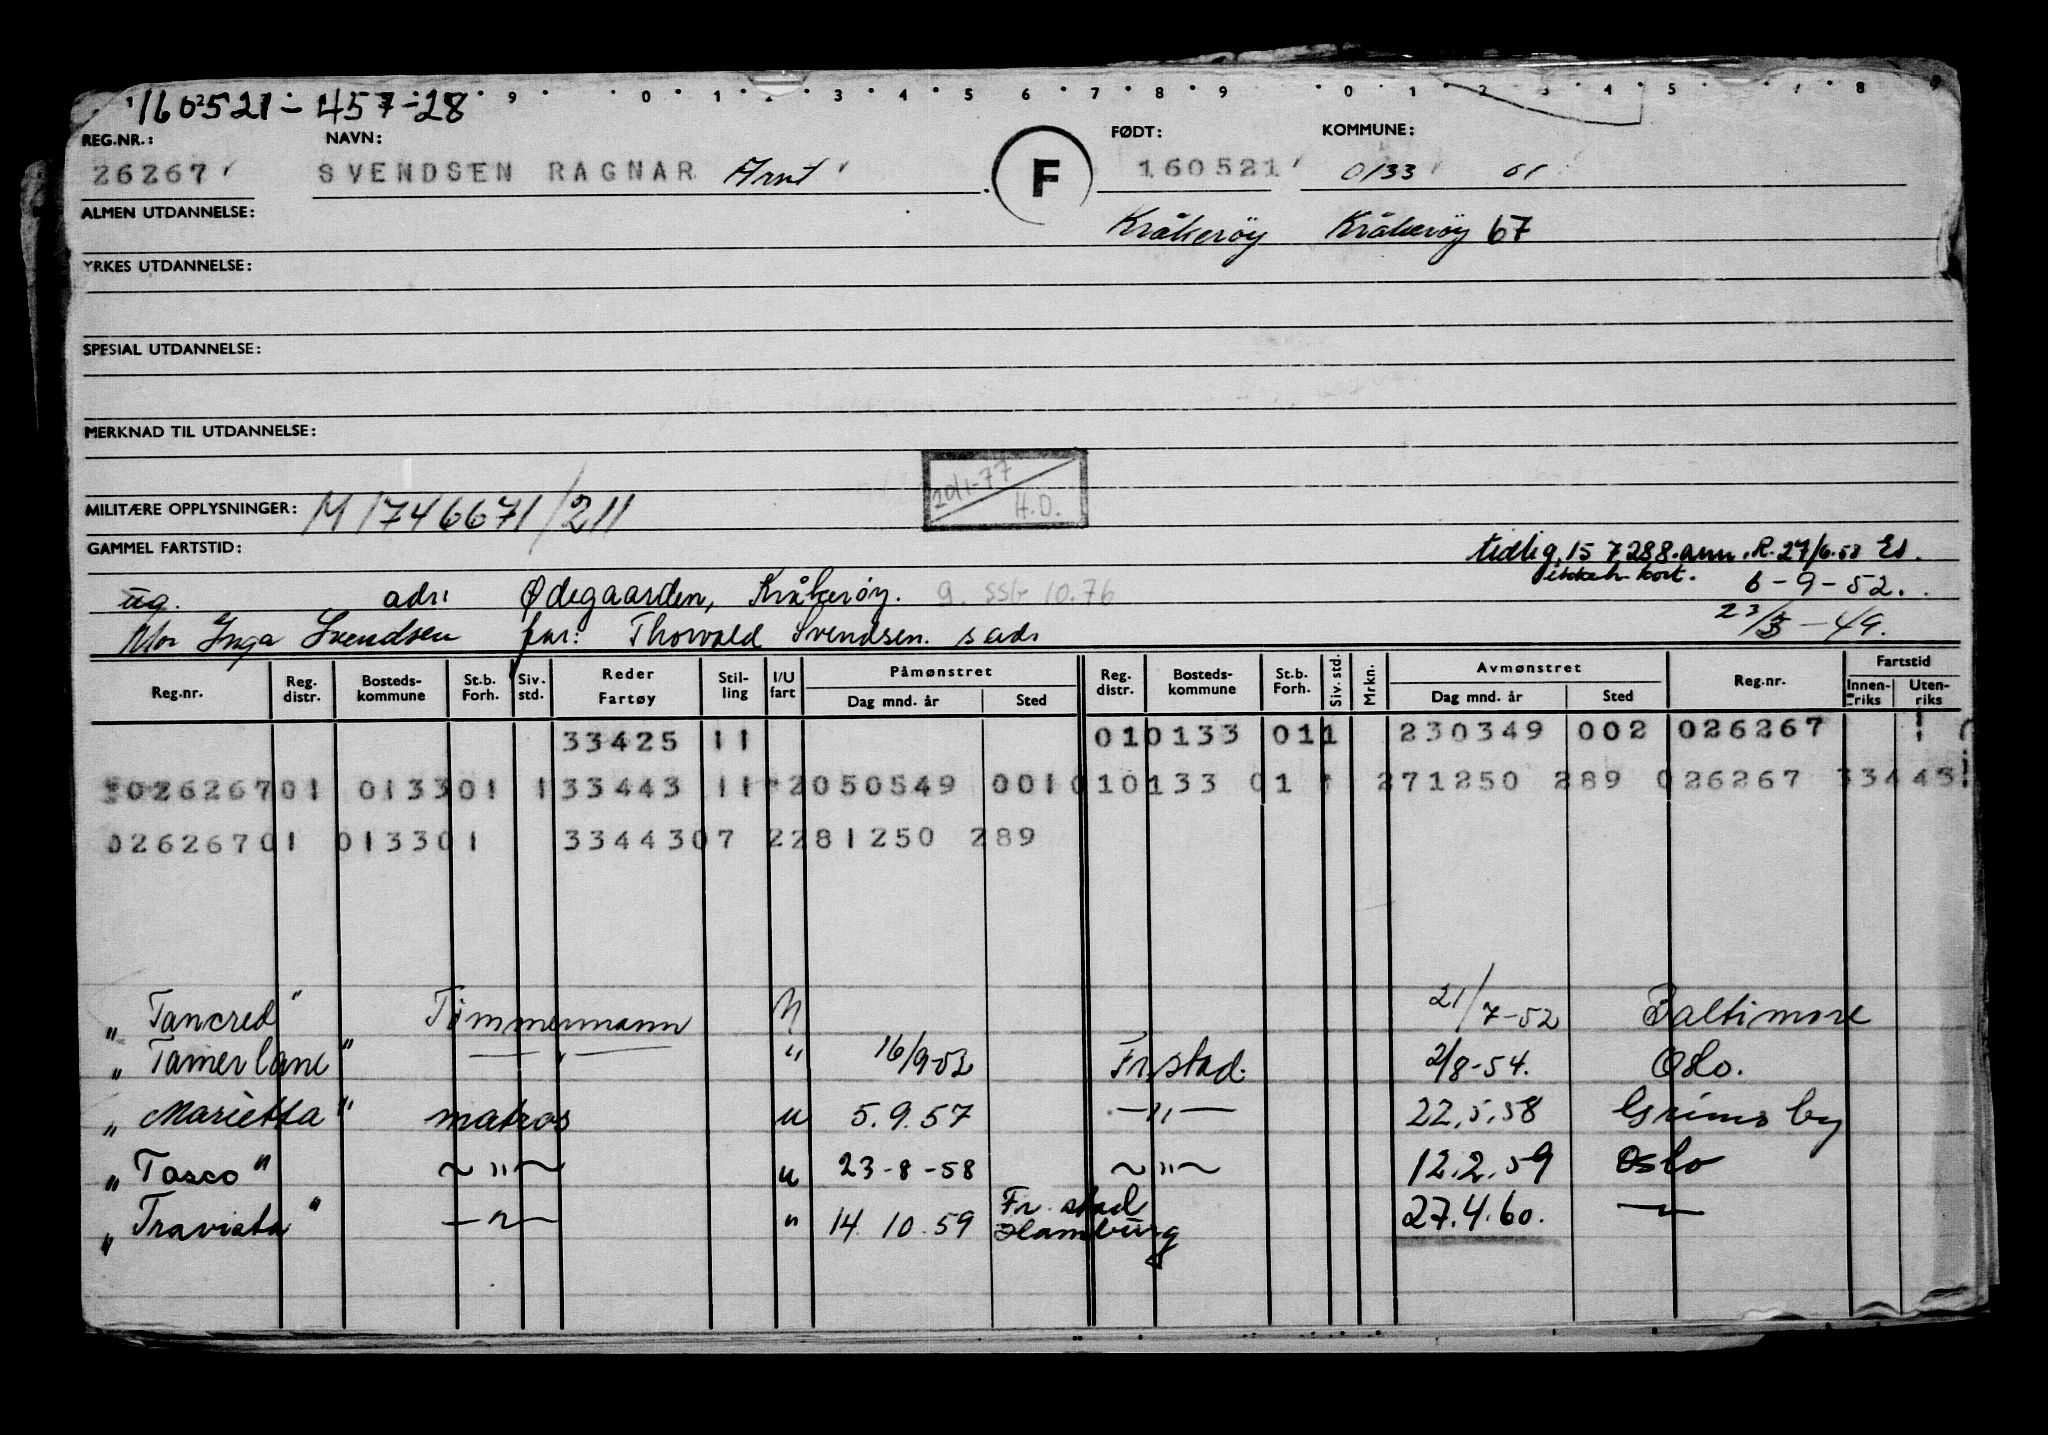 160521-457-28
9 0 1 2 3 4 5 6 7 8 9 0 1 2 3 4 5 7 8
REG.NR.: NAVN: FØDT: KOMMUNE:
26267 SVENDSEN RAGNAR Arnt F 160521 0133 01
ALMEN UTDANNELSE: Kråkerøy Kråkerøy 67
YRKES UTDANNELSE:
SPESIAL UTDANNELSE:
MERKNAD TIL UTDANNELSE:
20/1-77 H.D.
MILITÆRE OPPLYSNINGER: M 1746671/211
GAMMEL FARTSTID: tidlig. 157288. ann. R. 27/6.58 Ed.
ikkeh. kort. 6-9-52.
ug. adr: Ødegaarden, Kråkerøy. g. ssb 10.76
23/3-49.
Mor Inga Svendsen far: Thorvald Svendsen. s adr
Reg.nr. Reg. distr. Bosteds-kommune St.b. Forh. Siv. std. Reder Fartøy Stil-ling I/U fart Påmønstret Dag mnd. år Sted Reg. distr. Bosteds-kommune St.b. Forh. Siv. std. Mrkn. Avmønstret Dag mnd. år Sted Reg.nr. Fartstid Innen-riks Uten-riks
33425 11 010133 011 230349 002 026267
02626701 013301 1 33443 11 2050549 001010133 01 1 271250 289 026267 33443
02626701 013301 3344307 2281250 289
"Tancred" Tømmermann U 21/7-52 Baltimore
"Tamerlane" —"— " 16/9-52 Fr.stad. 2/8-54. Oslo.
"Marietta" matros u 5.9.57 —"— 22.5.58 Grimsby
"Tosco" ~"~ u 23-8-58 ~"~ 12.2.59 Oslo
"Traviata" —"— " 14.10.59 Fr.stad Hamburg 27.4.60. —"—